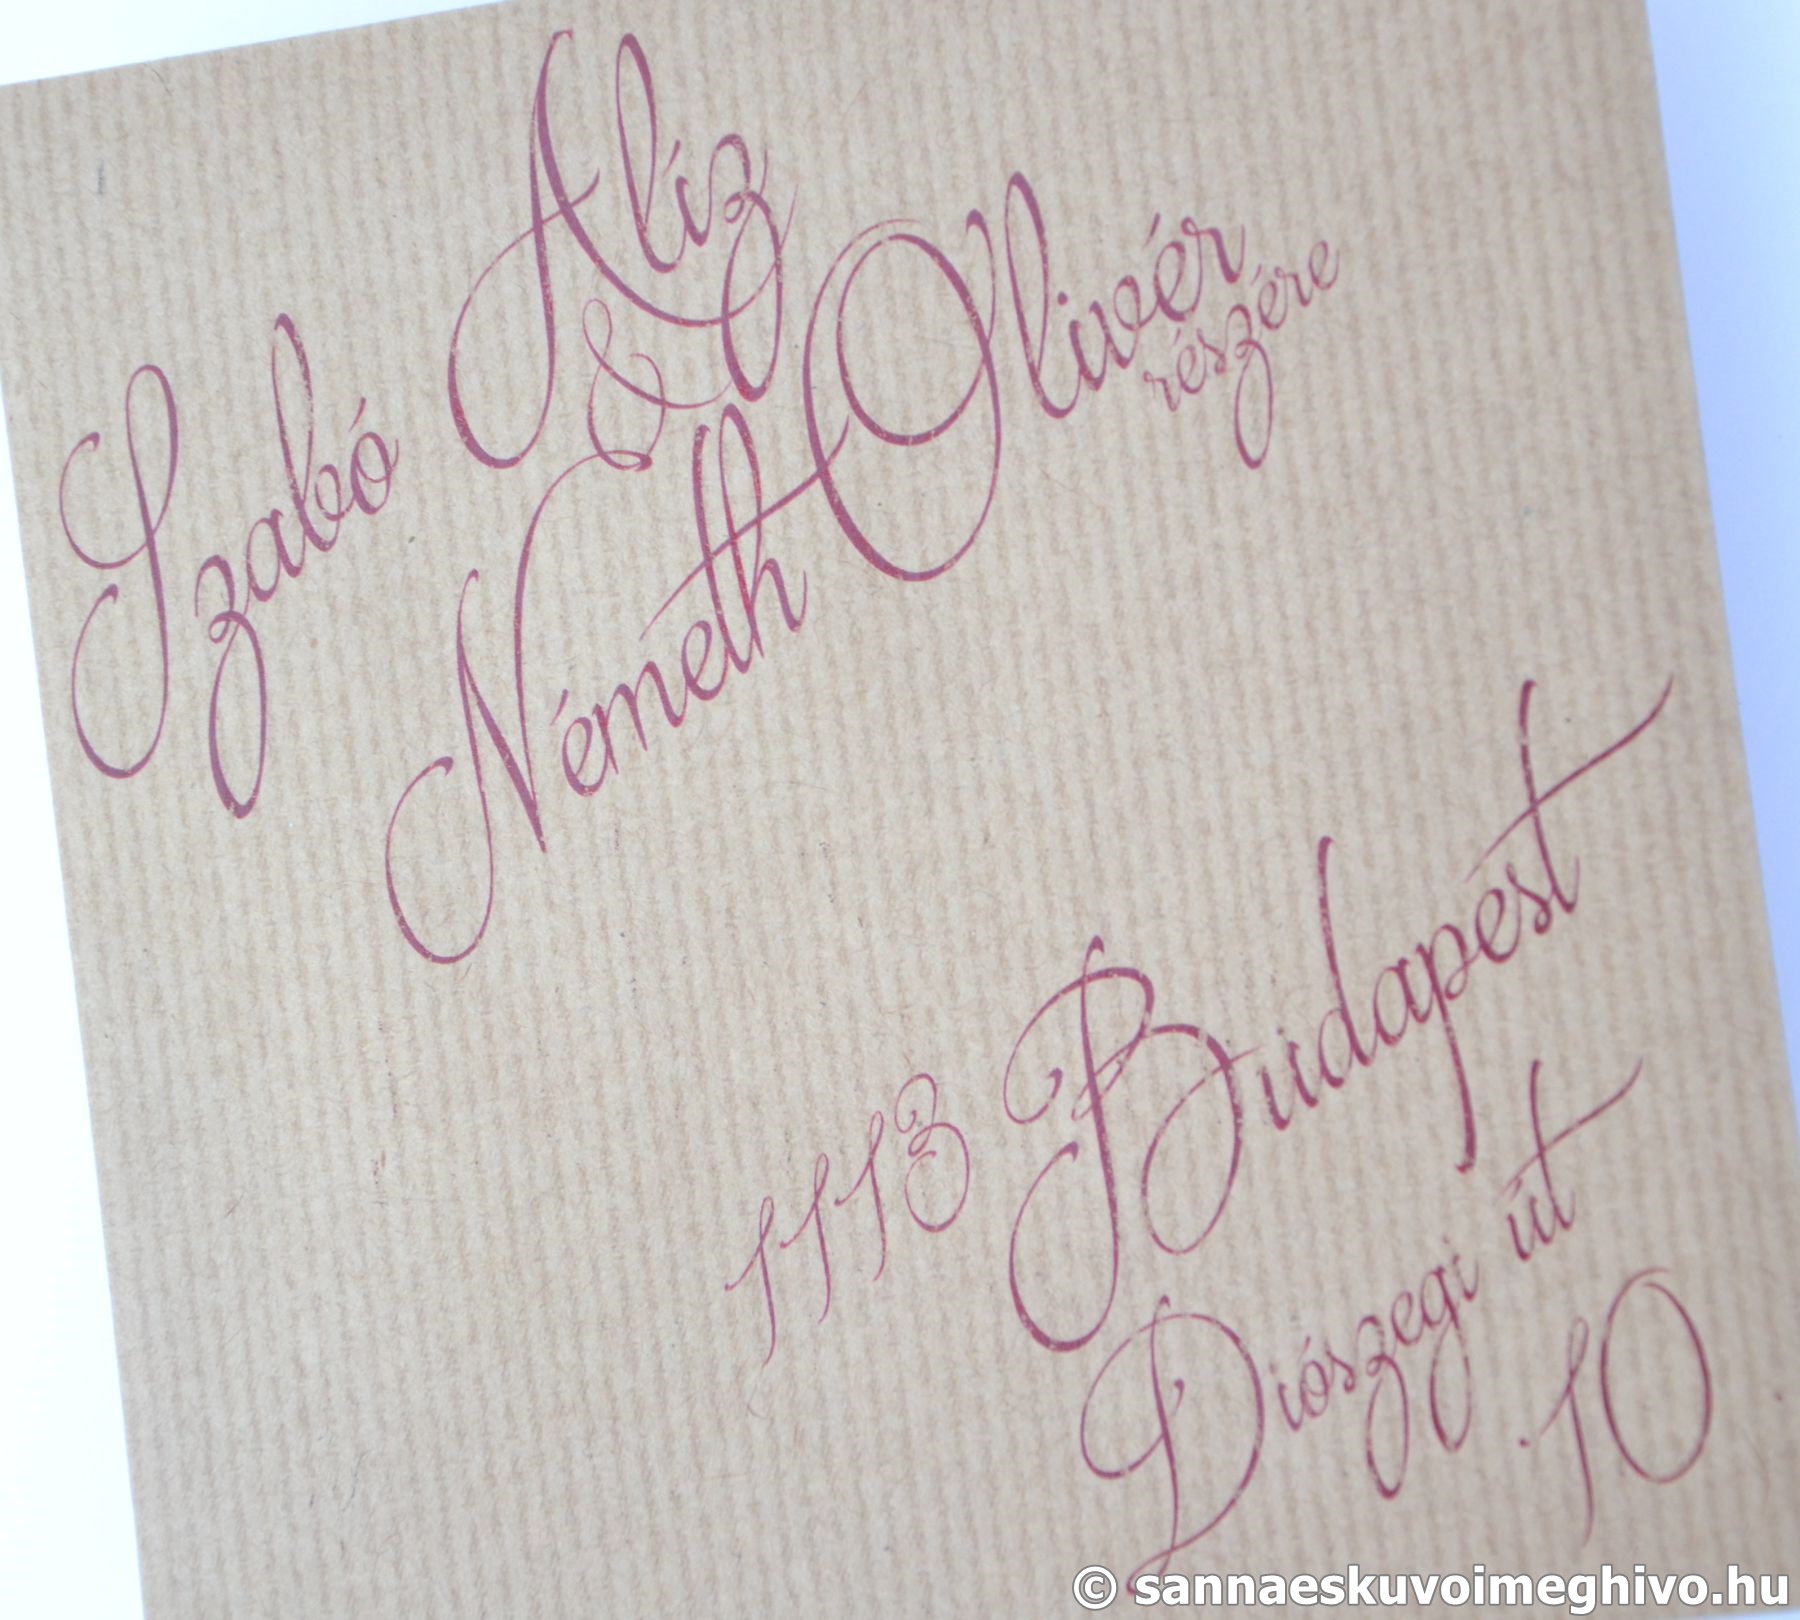 Szabó Alíz
&
Németh Olivér
részére
1113 Budapest
Diószegi út
10.
© sannaeskuvoimeghivo.hu